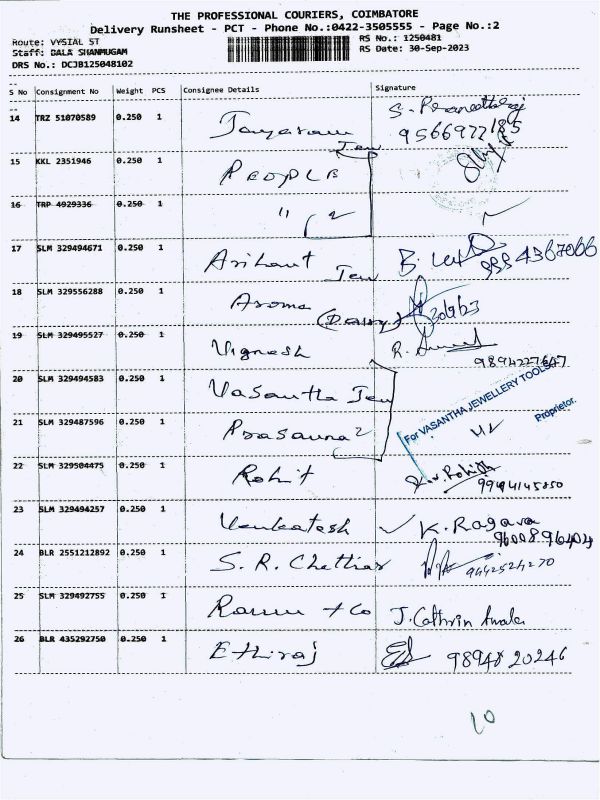 THE PROFESSIONAL COURIERS, COIMBATORE
Delivery Runsheet - PCT - Phone No.:0422-3505555 - Page No.:2
Route: VYSIAL ST
RS No.: 1250481
Staff: BALA SHANMUGAM
RS Date: 30-Sep-2023
DRS No.: DCJB125048102
S No Consignment No Weight PCS Consignee Details Signature
14 TRZ 51070589 0.250 1 Jayaram Jew
15 KKL 2351946 0.250 1 PEOPLE
16 TRP 4929336 0.250 1 " 2
17 SLM 329494671 0.250 1 Arihant Jew B.
18 SLM 329556288 0.250 1 Aroma (Dairy)
19 SLM 329495527 0.250 1 Vignesh R.
9894227647
20 SLM 329494583 0.250 1 Vasantha Jew
For VASANTHA JEWELLERY TOOLS
Proprietor.
21 SLM 329487596 0.250 1 Prasanna 2
22 SLM 329504475 0.250 1 Rohit
23 SLM 329494257 0.250 1 Venkatesh ✓ K. Ragava
24 BLR 2551212892 0.250 1 S. R. Chettiar 9442524270
25 SLM 329492755 0.250 1 Ramu + Co J. Cathrin
26 BLR 435292750 0.250 1 Ethiraj 98948 20246
10